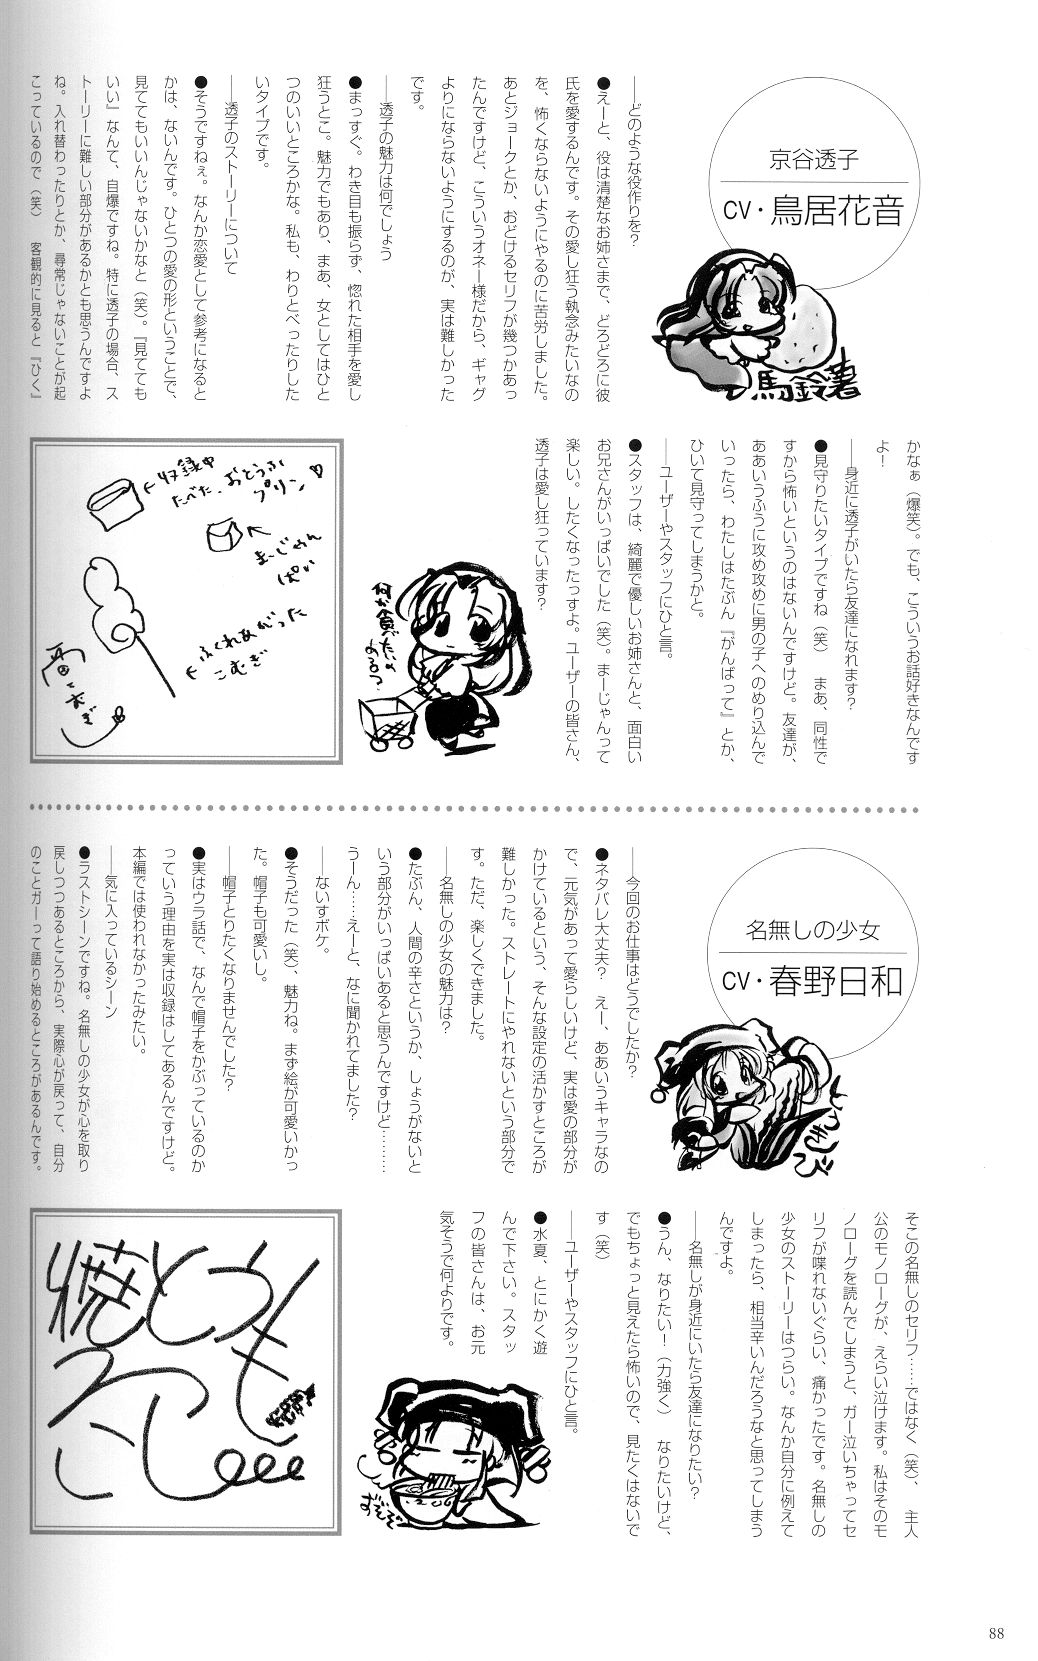 京谷透子
CV・鳥居花音
――どのような役作りを?
●えーと、役は清楚なお姉さまで、どろどろに彼
氏を愛するんです。その愛し狂う執念みたいなの
を、怖くならないようにやるのに苦労しました。
あとジョークとか、おどけるセリフが幾つかあっ
たんですけど、こういうオネー様だから、ギャグ
よりにならないようにするのが、実は難しかった
です。
――透子の魅力は何でしょう
●まっすぐ。わき目も振らず、惚れた相手を愛し
狂うとこ。魅力でもあり、まあ、女としてはひと
つのいいところかな。私も、わりとべったりした
いタイプです。
――透子のストーリーについて
●そうですねぇ。なんか恋愛として参考になると
かは、ないんです。ひとつの愛の形ということで、
見ててもいいんじゃないかなと(笑)。『見てても
いい』なんて、自爆ですね。特に透子の場合、ス
トーリーに難しい部分があるかとも思うんですよ
ね。入れ替わったりとか、尋常じゃないことが起
こっているので(笑) 客観的に見ると『ひく』
馬鈴薯
かなぁ(爆笑)。でも、こういうお話好きなんです
よ!
――身近に透子がいたら友達になれます?
●見守りたいタイプですね(笑) まあ、同性で
すから怖いというのはないんですけど。友達が、
ああいうふうに攻め攻めに男の子へのめり込んで
いったら、わたしはたぶん『がんばって』とか、
ひいて見守ってしまうかと。
――ユーザーやスタッフにひと言。
●スタッフは、綺麗で優しいお姉さんと、面白い
お兄さんがいっぱいでした(笑)。まーじゃんって
楽しい。したくなったっすよ。ユーザーの皆さん、
透子は愛し狂っています?
何か食べたいもの
ある?
収録中
たべた、おとうふ
プリン♡
まーじゃん
ぱい
ふくれあがった
こむぎ
名無しの少女
CV・春野日和
――今回のお仕事はどうでしたか?
●ネタバレ大丈夫? えー、ああいうキャラなの
で、元気があって愛らしいけど、実は愛の部分が
かけているという、そんな設定の活かすところが
難しかった。ストレートにやれないという部分で
す。ただ、楽しくできました。
――名無しの少女の魅力は?
●たぶん、人間の辛さというか、しょうがないと
いう部分がいっぱいあると思うんですけど………
うーん……えーと、なに聞かれてました?
――ないすボケ。
●そうだった(笑)、魅力ね。まず絵が可愛いかっ
た。帽子も可愛いし。
――帽子とりたくなりませんでした?
●実はウラ話で、なんで帽子をかぶっているのか
っていう理由を実は収録はしてあるんですけど。
本編では使われなかったみたい。
――気に入っているシーン
●ラストシーンですね。名無しの少女が心を取り
戻しつつあるところから、実際心が戻って、自分
のことガーって語り始めるところがあるんです。
そこの名無しのセリフ……ではなく(笑)、 主人
公のモノローグが、えらい泣けます。私はそのモ
ノローグを読んでしまうと、ガー泣いちゃってセ
リフが喋れないぐらい、痛かったです。名無しの
少女のストーリーはつらい。なんか自分に例えて
しまったら、相当辛いんだろうなと思ってしまう
んですよ。
――名無しが身近にいたら友達になりたい?
●うん、なりたい!(力強く) なりたいけど、
でもちょっと見えたら怖いので、見たくはないで
す(笑)
――ユーザーやスタッフにひと言。
●水夏、とにかく遊
んで下さい。スタッ
フの皆さんは、お元
気そうで何よりです。
とうも
焼
88